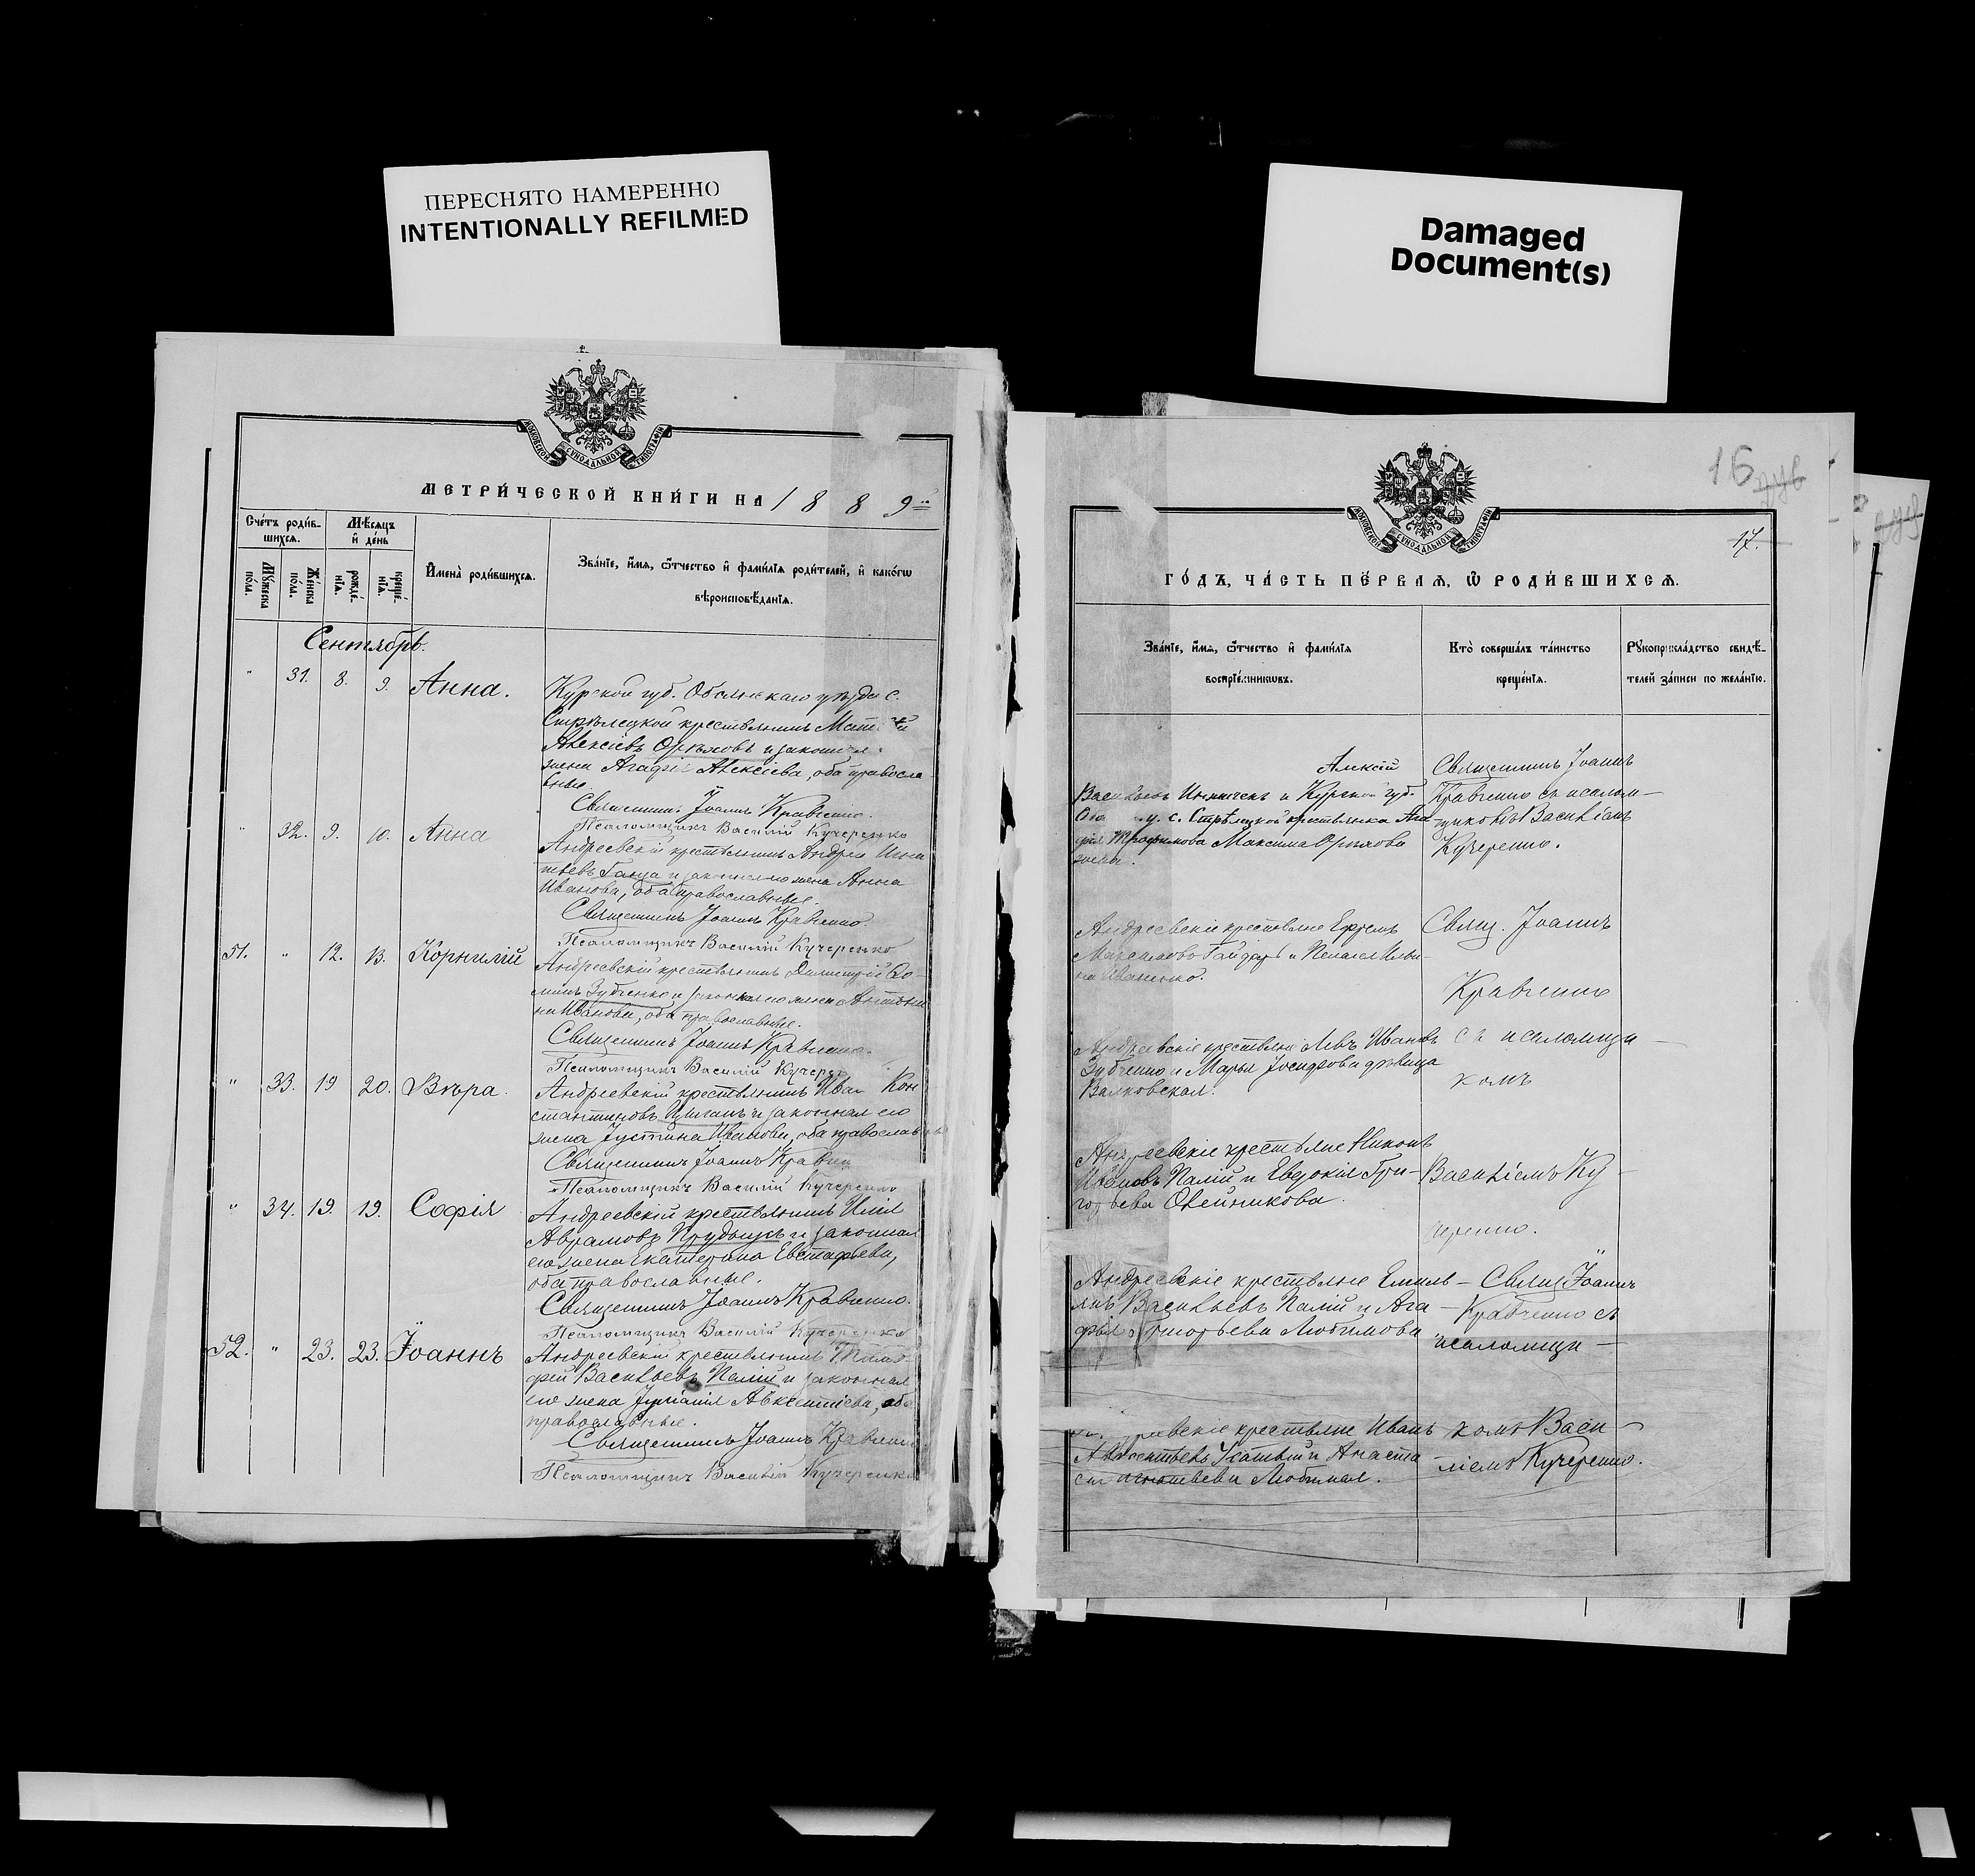 ПЕРЕСНЯТО НАМЕРЕННО
INTENTIONALLY REFILMED
Damaged
Document(s)
МОСКОВСКОЙ СѴНОДАЛЬНОЙ ТИПОГРАФІИ
МЕТРИ́ЧЕСКОЙ КНИ́ГИ НА 1889
Сче́тъ роди́в-
шихсѧ.
Мѣ́сѧцъ
и҆ де́нь
И҆мена̀ роди́вшихсѧ.
Зва́нїе, и҆́мѧ, ѻ҆́тчество и҆ фами́лїѧ роди́телей, и҆ како́гѡ
вѣроисповѣ́данїѧ.
Мꙋ́жеска
по́ла.
Же́нска
по́ла.
рожде́-
нїѧ.
креще́-
нїѧ.
Сентябрь.
" 31. 8. 9. Анна.
Курской губ. Обоянскаго уѣзда с.
Стрѣлецкой крестьянинъ
Алексѣевъ Орѣховъ и законная
жена Агафія Алексѣева, оба правосла
вные.
Священникъ Іоаннъ Кравченко.
Псаломщикъ Василій Кучеренко
" 32. 9. 10. Анна
Андреевскій крестьянинъ Андрей Игна
тьевъ и законная его жена Анна
Иванова, оба православные.
Священникъ Іоаннъ Кравченко.
Псаломщикъ Василій Кучеренко
51. " 12. 13. Корнилій
Андреевскій крестьянинъ Димитрій
Зубченко и законная его жена Антони
на Иванова, оба православные.
Священникъ Іоаннъ Кравченко.
Псаломщикъ Василій Кучеренко
" 33. 19 20. Вѣра.
Андреевскій крестьянинъ Иван Кон
стантиновъ Цыганъ и законная его
жена Іустина Иванова, оба православные
Священникъ Іоаннъ Кравчен
Псаломщикъ Василій Кучеренко
" 34. 19. 19. Софія
Андреевскій крестьянинъ Илія
Аврамовъ и законная
его жена Екатерина Евстафьева,
оба православные.
Священникъ Іоаннъ Кравченко.
Псаломщикъ Василій Кучеренко
52. " 23. 23. Іоаннъ
Андреевскій крестьянинъ Тимо
фей Васильевъ Палій и законная
его жена Іуліанія Авксентіева, оба
православные.
Священникъ Іоаннъ Кравченко
Псаломщикъ Василій Кучеренко
16
17.
МОСКОВСКОЙ СѴНОДАЛЬНОЙ ТИПОГРАФІИ
ГО́ДЪ, ЧА́СТЬ ПЕ́РВАѦ, Ѽ РОДИ́ВШИХСѦ.
Зва́нїе, и҆́мѧ, ѻ҆́тчество и҆ фами́лїѧ
воспрїе́мникѡвъ.
Кто̀ соверша́лъ та́инство
креще́нїѧ.
Рꙋкоприкла́дство свидѣ́-
телей за́писи по жела́нїю.
Алексій
Васильевъ и Курской губ.
у. с. Стрѣлецкой крестьянка Ага
фія Трофимова Максима Орѣхова
жена.
Священникъ Іоаннъ
Кравченко съ псалом-
щикомъ Василіемъ
Кучеренко.
Андреевскіе крестьяне Ефремъ
Максимовъ Гайдарь и Пелагея Ильи-
на Иваненко.
Свящ. Іоаннъ
Кравченко
Андреевскіе крестьяне Левъ Ивановъ
Зубченко и Марья Іосифова дѣвица
Валковская.
съ псаломщи-
комъ
Андреевскіе крестьяне Никонъ
Ивановъ Палій и Евдокія Гри-
горьева Олейникова.
Василіемъ Ку-
черенко.
Андреевскіе крестьяне Емиль-
янъ Васильевъ Палій и Ага-
фья Григорьева Любимова
Свящ Іоаннъ
Кравченко съ
псаломщи-
крестьяне Иванъ
Авксентьевъ Усатый и Анаста
сія Игнатьева Любимая.
комъ Васи-
ліемъ Кучеренко.